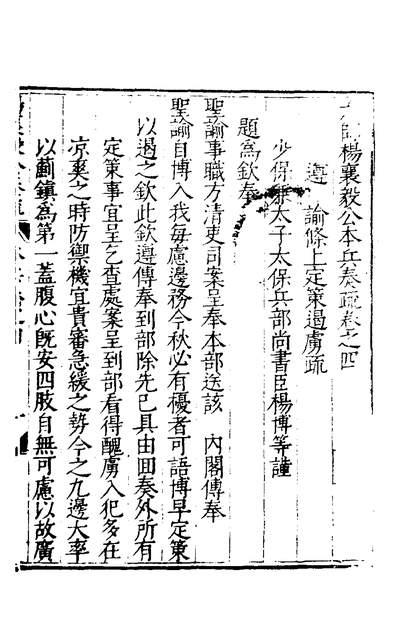 太師楊襄毅公本兵奏疏卷之四
遵 諭條上定策遏虜疏
少保兼太子太保兵部尚書臣楊博等謹
題為欽奉
聖諭事職方清吏司案呈奉本部送該 內閣傳奉
聖諭自博入我每慮邊務今秋必有擾者可語博早定策
以遏之欽此欽遵傳奉到部除先已具由回奏外所有
定策事宜呈乞查處案呈到部看得醜虜入犯多在
凉爽之時防禦機宜貴審急緩之勢今之九邊大率
以薊鎮為第一蓋腹心既安四肢自無可慮以故廣